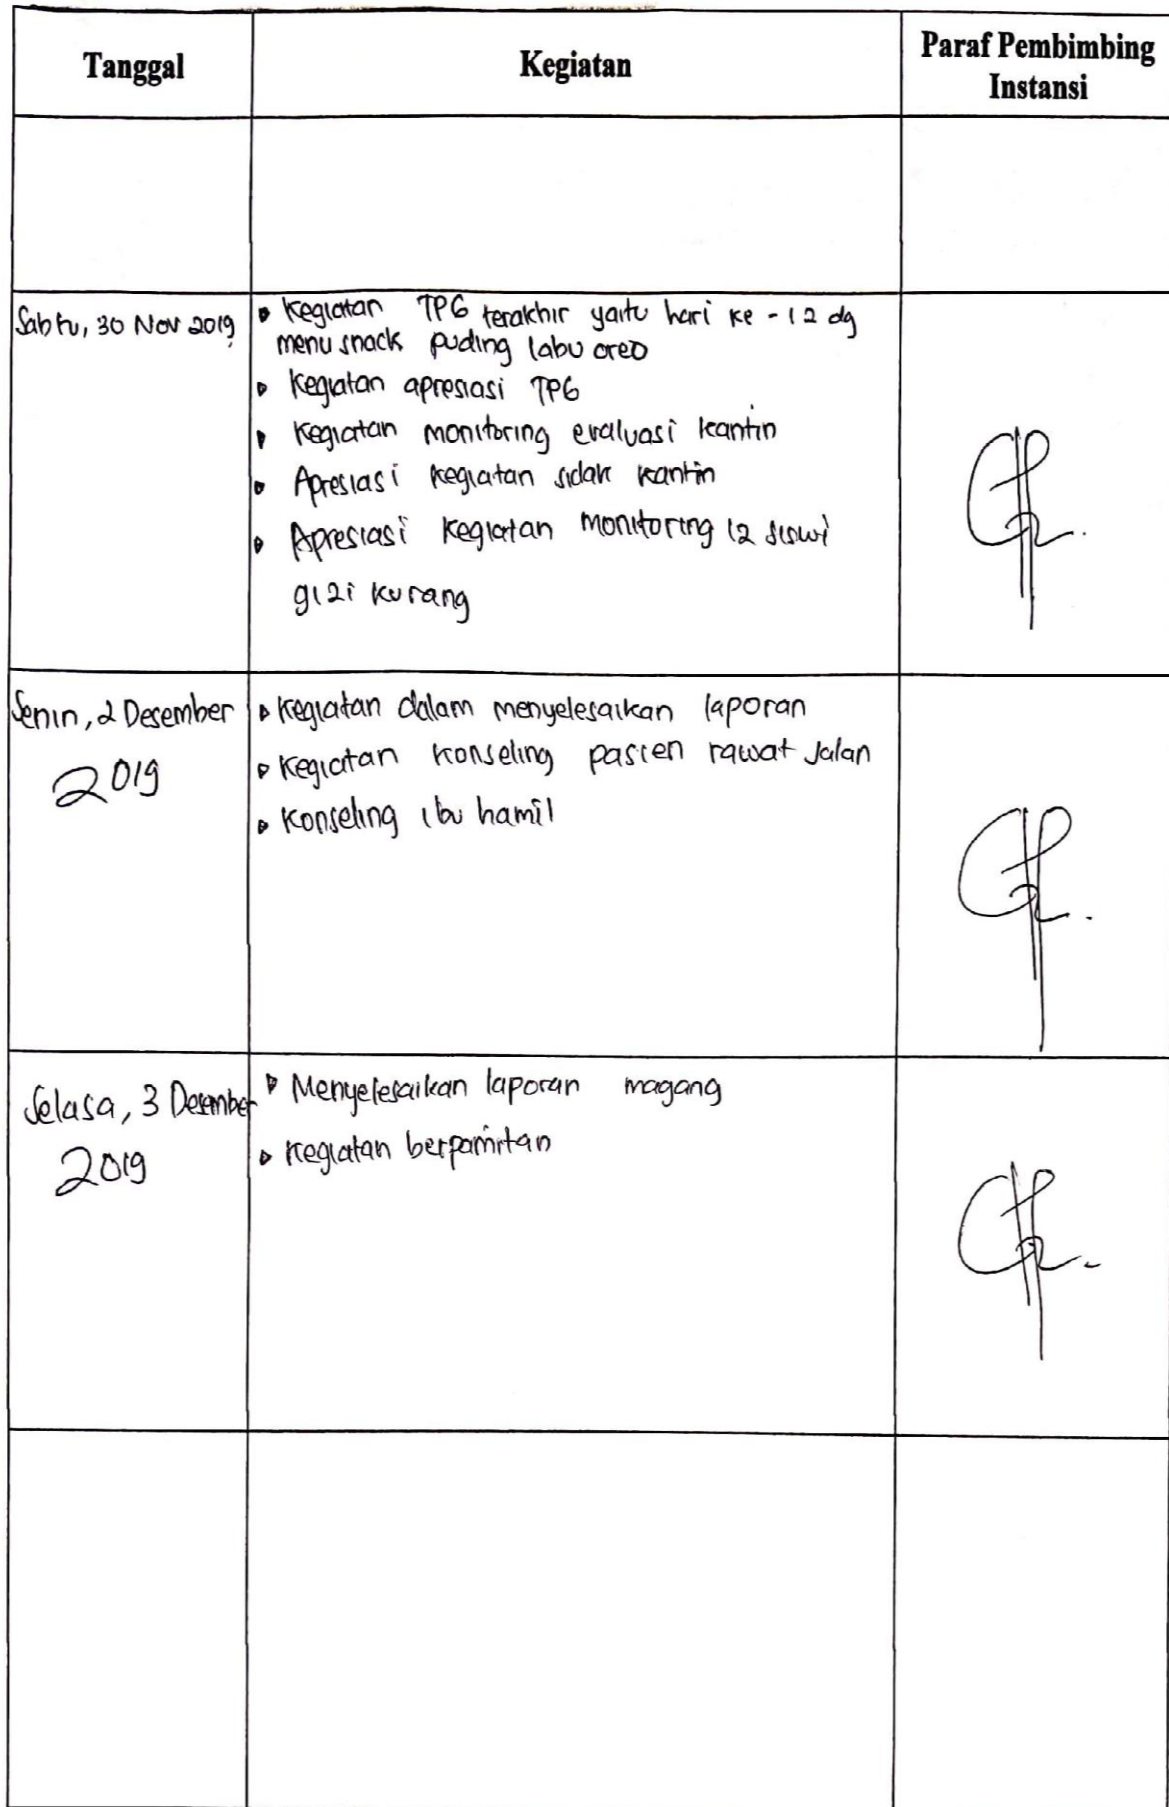 Tanggal
Kegiatan
Paraf Pembimbing
Instansi
Sabtu, 30 Nov 2019
Kegiatan TPG terakhir yaitu hari ke - 12 dg
menu snack puding labu oreo
Kegiatan apresiasi TPG
Kegiatan monitoring evaluasi kantin
Apresiasi kegiatan sidak kantin
Apresiasi kegiatan monitoring 12 siswi
gizi kurang
Senin, 2 Desember
2019
Kegiatan dalam menyelesaikan laporan
Kegiatan konseling pasien rawat jalan
Konseling ibu hamil
Selasa, 3 Desember
2019
Menyelesaikan laporan magang
Kegiatan berpamitan